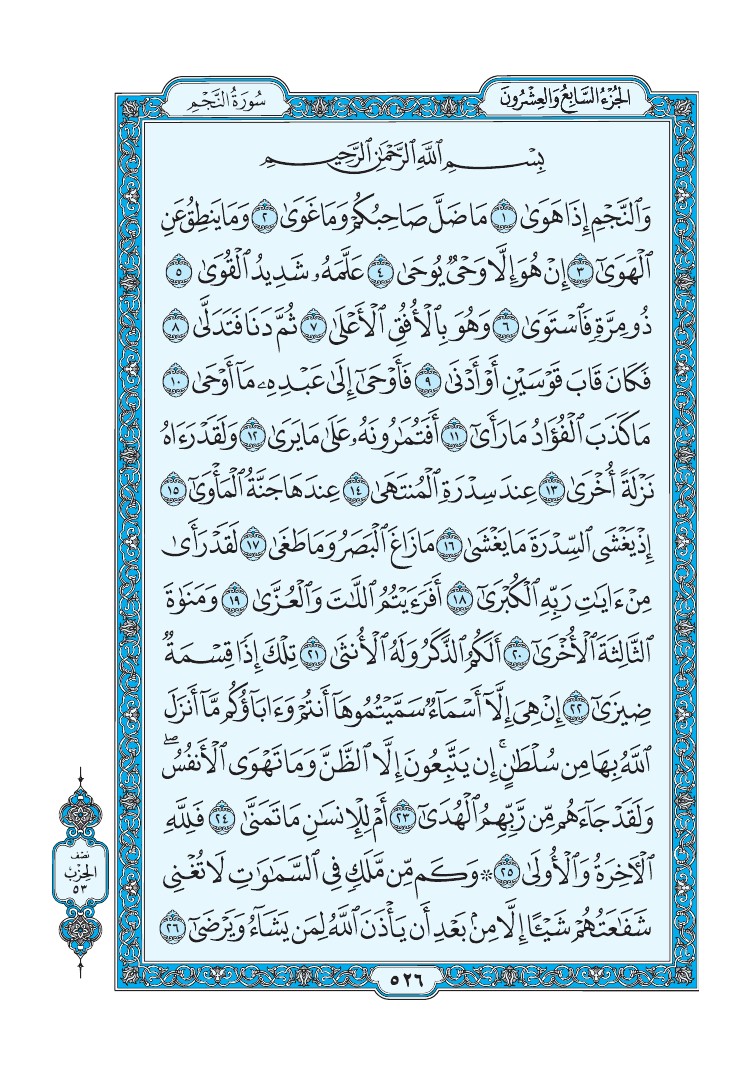 الجُزْءُ السَّابِعُ وَالعِشْرُونَ
سُورَةُ النَّجْمِ
بِسْمِ ٱللَّهِ ٱلرَّحْمَٰنِ ٱلرَّحِيمِ
وَٱلنَّجْمِ إِذَا هَوَىٰ ١ مَا ضَلَّ صَاحِبُكُمْ وَمَا غَوَىٰ ٢ وَمَا يَنطِقُ عَنِ
ٱلْهَوَىٰٓ ٣ إِنْ هُوَ إِلَّا وَحْىٌ يُوحَىٰ ٤ عَلَّمَهُۥ شَدِيدُ ٱلْقُوَىٰ ٥
ذُو مِرَّةٍ فَٱسْتَوَىٰ ٦ وَهُوَ بِٱلْأُفُقِ ٱلْأَعْلَىٰ ٧ ثُمَّ دَنَا فَتَدَلَّىٰ ٨
فَكَانَ قَابَ قَوْسَيْنِ أَوْ أَدْنَىٰ ٩ فَأَوْحَىٰٓ إِلَىٰ عَبْدِهِۦ مَآ أَوْحَىٰ ١٠
مَا كَذَبَ ٱلْفُؤَادُ مَا رَأَىٰٓ ١١ أَفَتُمَٰرُونَهُۥ عَلَىٰ مَا يَرَىٰ ١٢ وَلَقَدْ رَءَاهُ
نَزْلَةً أُخْرَىٰ ١٣ عِندَ سِدْرَةِ ٱلْمُنتَهَىٰ ١٤ عِندَهَا جَنَّةُ ٱلْمَأْوَىٰٓ ١٥
إِذْ يَغْشَى ٱلسِّدْرَةَ مَا يَغْشَىٰ ١٦ مَا زَاغَ ٱلْبَصَرُ وَمَا طَغَىٰ ١٧ لَقَدْ رَأَىٰ
مِنْ ءَايَٰتِ رَبِّهِ ٱلْكُبْرَىٰٓ ١٨ أَفَرَءَيْتُمُ ٱللَّٰتَ وَٱلْعُزَّىٰ ١٩ وَمَنَوٰةَ
ٱلثَّالِثَةَ ٱلْأُخْرَىٰٓ ٢٠ أَلَكُمُ ٱلذَّكَرُ وَلَهُ ٱلْأُنثَىٰ ٢١ تِلْكَ إِذًا قِسْمَةٌ
ضِيزَىٰٓ ٢٢ إِنْ هِىَ إِلَّآ أَسْمَآءٌ سَمَّيْتُمُوهَآ أَنتُمْ وَءَابَآؤُكُم مَّآ أَنزَلَ
ٱللَّهُ بِهَا مِن سُلْطَٰنٍ ۚ إِن يَتَّبِعُونَ إِلَّا ٱلظَّنَّ وَمَا تَهْوَى ٱلْأَنفُسُ ۖ
وَلَقَدْ جَآءَهُم مِّن رَّبِّهِمُ ٱلْهُدَىٰٓ ٢٣ أَمْ لِلْإِنسَٰنِ مَا تَمَنَّىٰ ٢٤ فَلِلَّهِ
ٱلْءَاخِرَةُ وَٱلْأُولَىٰ ٢٥ ۞ وَكَم مِّن مَّلَكٍ فِى ٱلسَّمَٰوَٰتِ لَا تُغْنِى
شَفَٰعَتُهُمْ شَيْـًٔا إِلَّا مِنۢ بَعْدِ أَن يَأْذَنَ ٱللَّهُ لِمَن يَشَآءُ وَيَرْضَىٰٓ ٢٦
نصف
الحِزْب
٥٣
٥٢٦